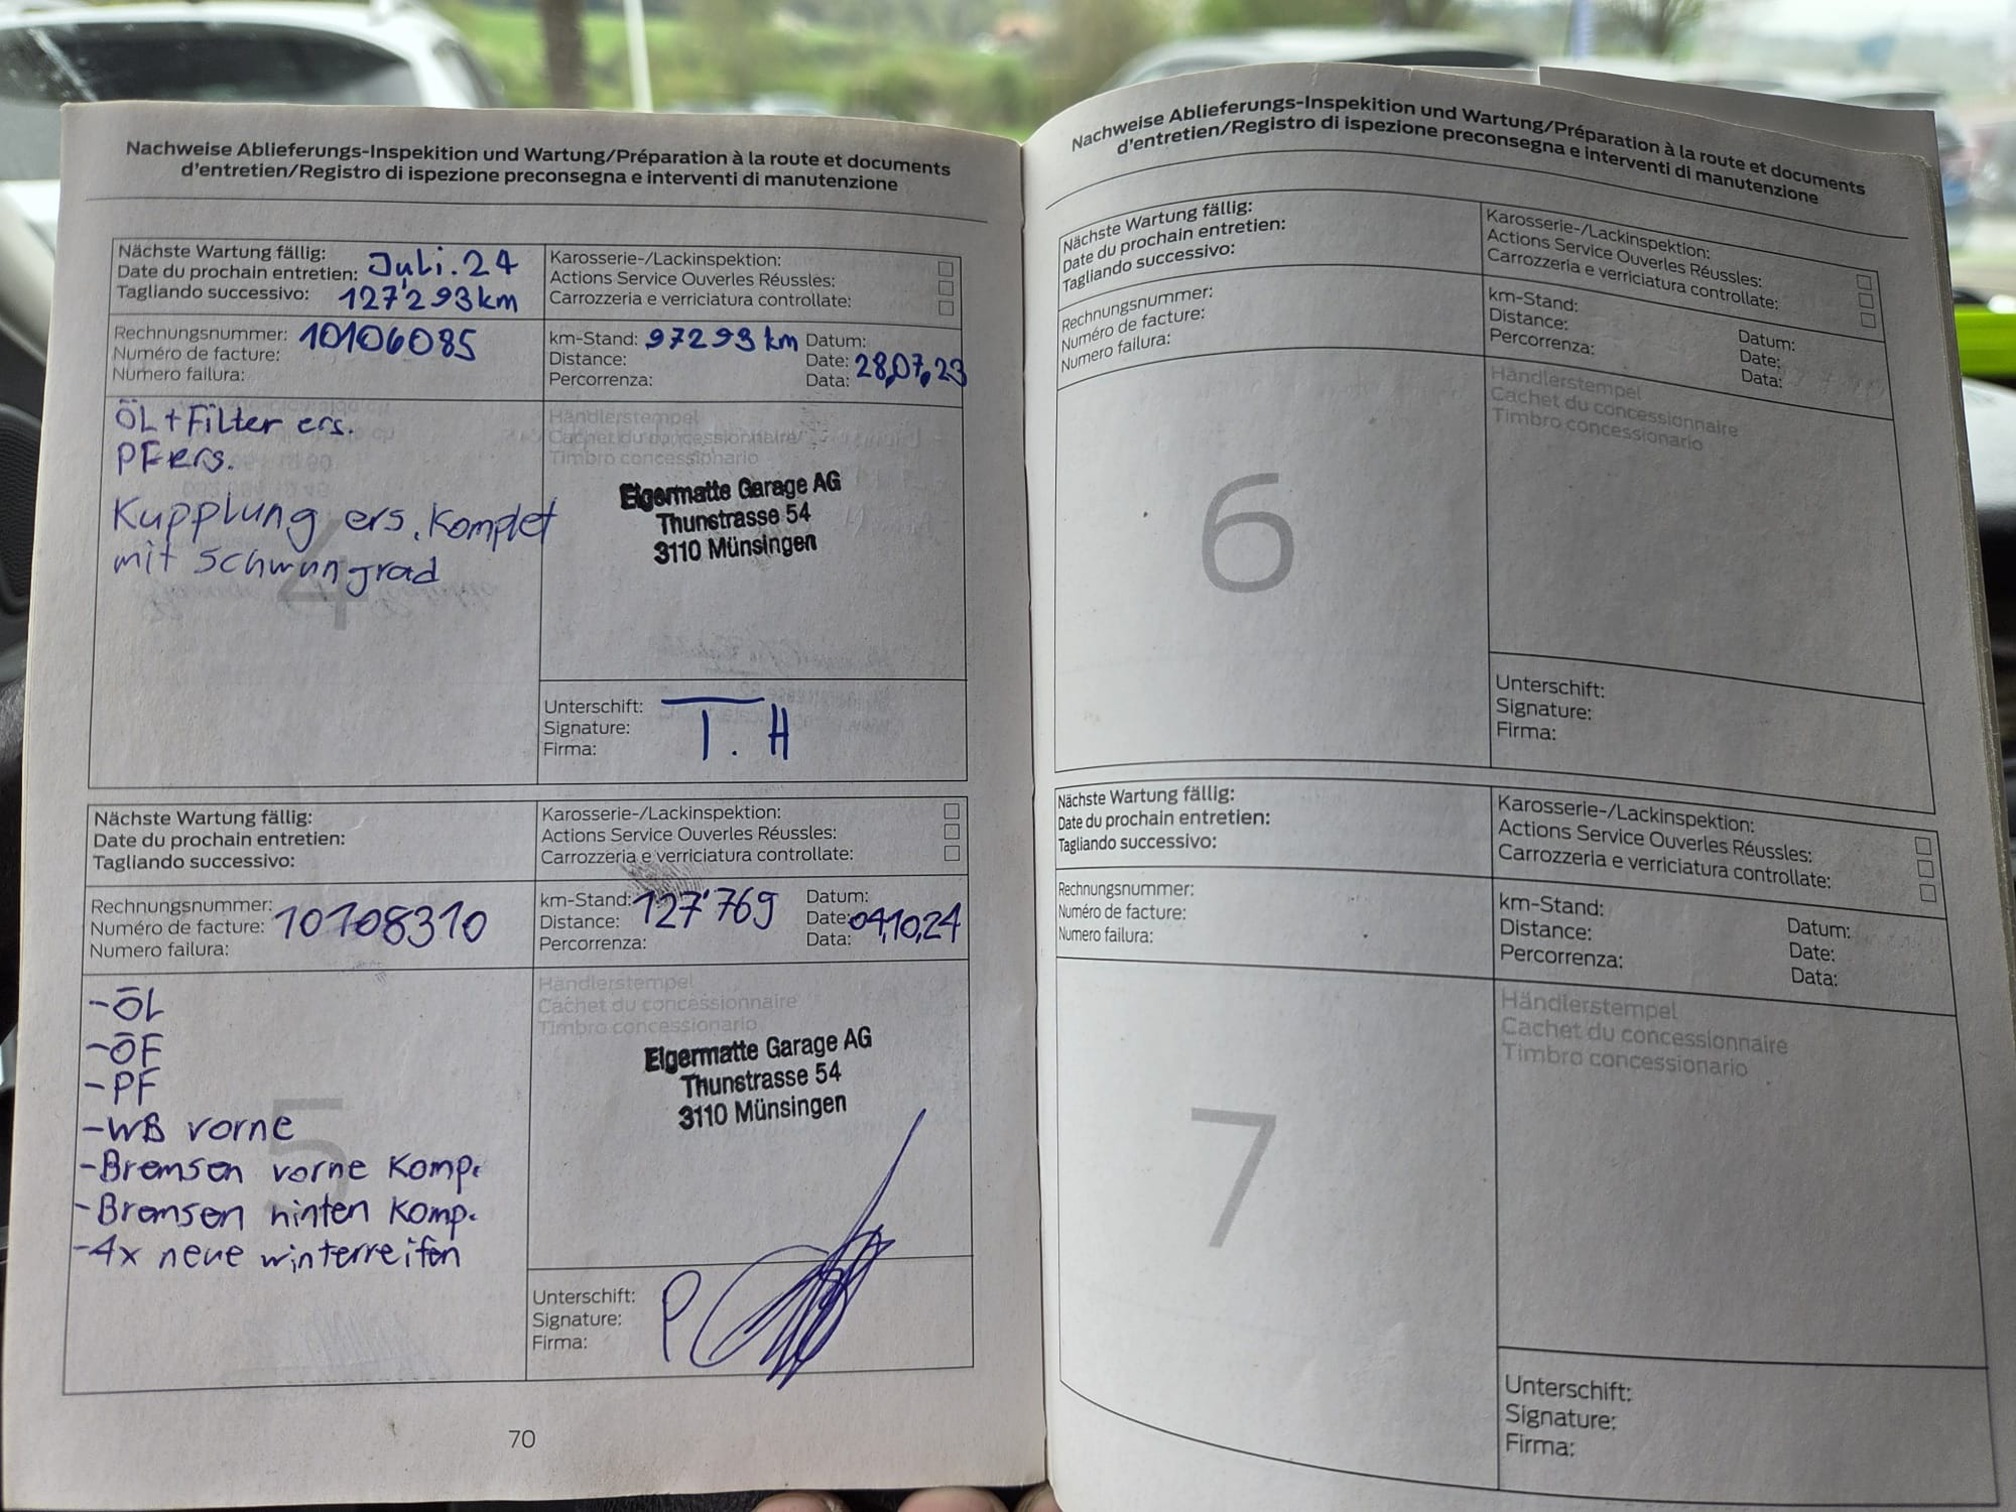 Nachweise Ablieferungs-Inspekition und Wartung/Préparation à la route et documents
d'entretien/Registro di ispezione preconsegna e interventi di manutenzione
Nächste Wartung fällig:
Date du prochain entretien: Juli.24
Tagliando successivo: 127'293km
Karosserie-/Lackinspektion:
Actions Service Ouverles Réussles:
Carrozzeria e verriciatura controllate:
Rechnungsnummer: 10106085
Numéro de facture:
Numero failura:
km-Stand: 97293 km
Distance:
Percorrenza:
Datum:
Date: 28,07,23
Data:
ÖL+Filter ers.
PF ers.
Kupplung ers. Komplet
mit Schwungrad
4
Händlerstempel
Cachet du concessionnaire
Timbro concessionario
Eigermatte Garage AG
Thunstrasse 54
3110 Münsingen
Unterschift:
Signature: T.H
Firma:
Nächste Wartung fällig:
Date du prochain entretien:
Tagliando successivo:
Karosserie-/Lackinspektion:
Actions Service Ouverles Réussles:
Carrozzeria e verriciatura controllate:
Rechnungsnummer:
Numéro de facture: 10108310
Numero failura:
km-Stand: 127'769
Distance:
Percorrenza:
Datum:
Date: 04,10,24
Data:
-ÖL
-ÖF
-PF
-WB vorne
-Bremsen vorne Komp.
-Bremsen hinten Komp.
-4x neue winterreifen
5
Händlerstempel
Cachet du concessionnaire
Timbro concessionario
Eigermatte Garage AG
Thunstrasse 54
3110 Münsingen
Unterschift:
Signature:
Firma:
70
Nachweise Ablieferungs-Inspekition und Wartung/Préparation à la route et documents
d'entretien/Registro di ispezione preconsegna e interventi di manutenzione
Nächste Wartung fällig:
Date du prochain entretien:
Tagliando successivo:
Karosserie-/Lackinspektion:
Actions Service Ouverles Réussles:
Carrozzeria e verriciatura controllate:
Rechnungsnummer:
Numéro de facture:
Numero failura:
km-Stand:
Distance:
Percorrenza:
Datum:
Date:
Data:
6
Händlerstempel
Cachet du concessionnaire
Timbro concessionario
Unterschift:
Signature:
Firma:
Nächste Wartung fällig:
Date du prochain entretien:
Tagliando successivo:
Karosserie-/Lackinspektion:
Actions Service Ouverles Réussles:
Carrozzeria e verriciatura controllate:
Rechnungsnummer:
Numéro de facture:
Numero failura:
km-Stand:
Distance:
Percorrenza:
Datum:
Date:
Data:
7
Händlerstempel
Cachet du concessionnaire
Timbro concessionario
Unterschift:
Signature:
Firma: